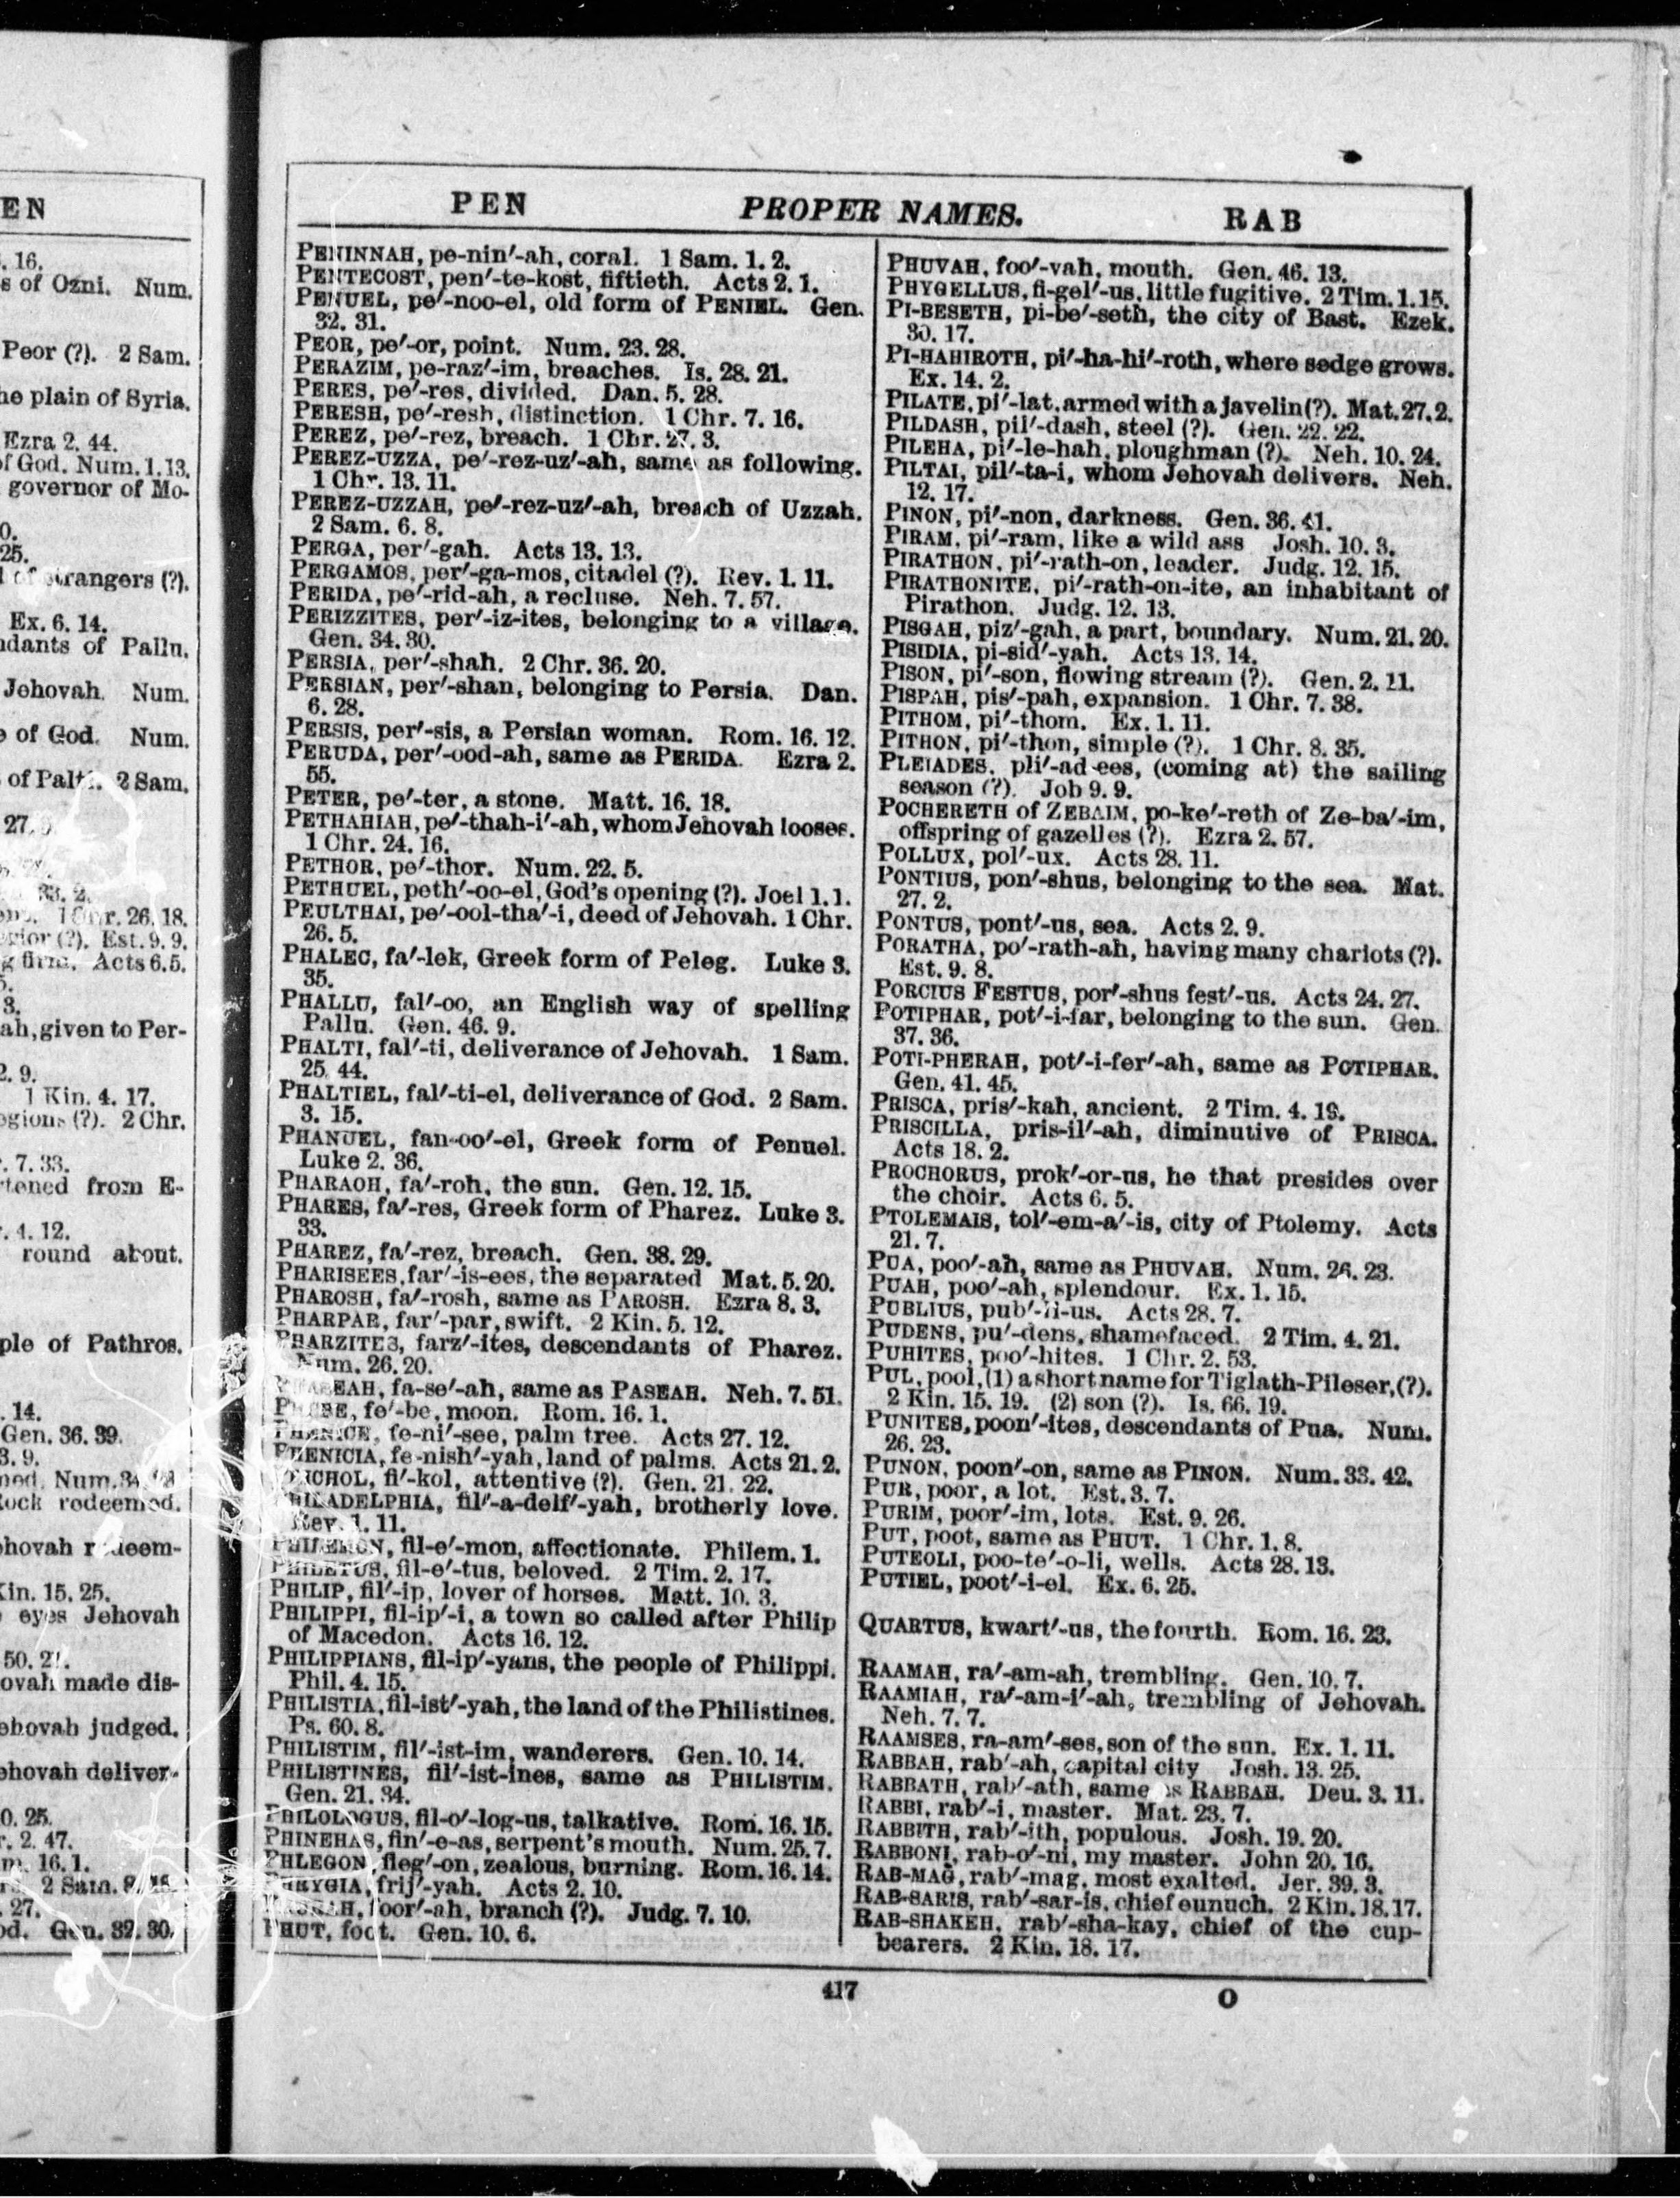 EN
. 16.
s of Ozni. Num.
Peor (?). 2 Sam.
he plain of Syria.
Ezra 2. 44.
of God. Num. 1. 13.
governor of Mo-
0.
25.
strangers (?).
Ex. 6. 14.
ndants of Pallu.
Jehovah. Num.
of God. Num.
of Palti. 2 Sam.
27.
33. 2.
26. 18.
(?). Est. 9. 9.
g firm. Acts 6. 5.
3.
ah, given to Per-
2. 9.
1 Kin. 4. 17.
egions (?). 2 Chr.
. 7. 33.
rtened from E-
. 4. 12.
round about.
ple of Pathros.
. 14.
Gen. 36. 39.
3. 9.
Num. 34.
Rock redeemed.
ehovah redeem-
Kin. 15. 25.
eyes Jehovah
50. 21.
ovah made dis-
ehovah judged.
ehovah deliver-
0. 25.
r. 2. 47.
16. 1.
2 Sam.
. 27.
od. Gen. 32. 30.
PEN PROPER NAMES. RAB
PENINNAH, pe-nin′-ah, coral. 1 Sam. 1. 2.
PENTECOST, pen′-te-kost, fiftieth. Acts 2. 1.
PENUEL, pe′-noo-el, old form of PENIEL. Gen.
32. 31.
PEOR, pe′-or, point. Num. 23. 28.
PERAZIM, pe-raz′-im, breaches. Is. 28. 21.
PERES, pe′-res, divided. Dan. 5. 28.
PERESH, pe′-resh, distinction. 1 Chr. 7. 16.
PEREZ, pe′-rez, breach. 1 Chr. 27. 3.
PEREZ-UZZA, pe′-rez-uz′-ah, same as following.
1 Chr. 13. 11.
PEREZ-UZZAH, pe′-rez-uz′-ah, breach of Uzzah.
2 Sam. 6. 8.
PERGA, per′-gah. Acts 13. 13.
PERGAMOS, per′-ga-mos, citadel (?). Rev. 1. 11.
PERIDA, pe′-rid-ah, a recluse. Neh. 7. 57.
PERIZZITES, per′-iz-ites, belonging to a village.
Gen. 34. 30.
PERSIA, per′-shah. 2 Chr. 36. 20.
PERSIAN, per′-shan, belonging to Persia. Dan.
6. 28.
PERSIS, per′-sis, a Persian woman. Rom. 16. 12.
PERUDA, per′-ood-ah, same as PERIDA. Ezra 2.
55.
PETER, pe′-ter, a stone. Matt. 16. 18.
PETHAHIAH, pe′-thah-i′-ah, whom Jehovah looses.
1 Chr. 24. 16.
PETHOR, pe′-thor. Num. 22. 5.
PETHUEL, peth′-oo-el, God's opening (?). Joel 1. 1.
PEULTHAI, pe′-ool-tha′-i, deed of Jehovah. 1 Chr.
26. 5.
PHALEC, fa′-lek, Greek form of Peleg. Luke 3.
35.
PHALLU, fal′-oo, an English way of spelling
Pallu. Gen. 46. 9.
PHALTI, fal′-ti, deliverance of Jehovah. 1 Sam.
25. 44.
PHALTIEL, fal′-ti-el, deliverance of God. 2 Sam.
3. 15.
PHANUEL, fan-oo′-el, Greek form of Penuel.
Luke 2. 36.
PHARAOH, fa′-roh, the sun. Gen. 12. 15.
PHARES, fa′-res, Greek form of Pharez. Luke 3.
33.
PHAREZ, fa′-rez, breach. Gen. 38. 29.
PHARISEES, far′-is-ees, the separated Mat. 5. 20.
PHAROSH, fa′-rosh, same as PAROSH. Ezra 8. 3.
PHARPAR, far′-par, swift. 2 Kin. 5. 12.
PHARZITES, farz′-ites, descendants of Pharez.
Num. 26. 20.
PHASEAH, fa-se′-ah, same as PASEAH. Neh. 7. 51.
PHEBE, fe′-be, moon. Rom. 16. 1.
PHENICE, fe-ni′-see, palm tree. Acts 27. 12.
PHENICIA, fe-nish′-yah, land of palms. Acts 21. 2.
PHICHOL, fi′-kol, attentive (?). Gen. 21. 22.
PHILADELPHIA, fil′-a-delf′-yah, brotherly love.
Rev. 1. 11.
PHILEMON, fil-e′-mon, affectionate. Philem. 1.
PHILETUS, fil-e′-tus, beloved. 2 Tim. 2. 17.
PHILIP, fil′-ip, lover of horses. Matt. 10. 3.
PHILIPPI, fil-ip′-i, a town so called after Philip
of Macedon. Acts 16. 12.
PHILIPPIANS, fil-ip′-yans, the people of Philippi.
Phil. 4. 15.
PHILISTIA, fil-ist′-yah, the land of the Philistines.
Ps. 60. 8.
PHILISTIM, fil′-ist-im, wanderers. Gen. 10. 14.
PHILISTINES, fil′-ist-ines, same as PHILISTIM.
Gen. 21. 34.
PHILOLOGUS, fil-o′-log-us, talkative. Rom. 16. 15.
PHINEHAS, fin′-e-as, serpent's mouth. Num. 25. 7.
PHLEGON, fleg′-on, zealous, burning. Rom. 16. 14.
PHRYGIA, frij′-yah. Acts 2. 10.
PHURAH, foor′-ah, branch (?). Judg. 7. 10.
PHUT, foot. Gen. 10. 6.
PHUVAH, foo′-vah, mouth. Gen. 46. 13.
PHYGELLUS, fi-gel′-us, little fugitive. 2 Tim. 1. 15.
PI-BESETH, pi-be′-seth, the city of Bast. Ezek.
30. 17.
PI-HAHIROTH, pi′-ha-hi′-roth, where sedge grows.
Ex. 14. 2.
PILATE, pi′-lat, armed with a javelin (?). Mat. 27. 2.
PILDASH, pil′-dash, steel (?). Gen. 22. 22.
PILEHA, pi′-le-hah, ploughman (?). Neh. 10. 24.
PILTAI, pil′-ta-i, whom Jehovah delivers. Neh.
12. 17.
PINON, pi′-non, darkness. Gen. 36. 41.
PIRAM, pi′-ram, like a wild ass Josh. 10. 3.
PIRATHON, pi′-rath-on, leader. Judg. 12. 15.
PIRATHONITE, pi′-rath-on-ite, an inhabitant of
Pirathon. Judg. 12. 13.
PISGAH, piz′-gah, a part, boundary. Num. 21. 20.
PISIDIA, pi-sid′-yah. Acts 13. 14.
PISON, pi′-son, flowing stream (?). Gen. 2. 11.
PISPAH, pis′-pah, expansion. 1 Chr. 7. 38.
PITHOM, pi′-thom. Ex. 1. 11.
PITHON, pi′-thon, simple (?). 1 Chr. 8. 35.
PLEIADES, pli′-ad-ees, (coming at) the sailing
season (?). Job 9. 9.
POCHERETH of ZEBAIM, po-ke′-reth of Ze-ba′-im,
offspring of gazelles (?). Ezra 2. 57.
POLLUX, pol′-ux. Acts 28. 11.
PONTIUS, pon′-shus, belonging to the sea. Mat.
27. 2.
PONTUS, pont′-us, sea. Acts 2. 9.
PORATHA, po′-rath-ah, having many chariots (?).
Est. 9. 8.
PORCIUS FESTUS, por′-shus fest′-us. Acts 24. 27.
POTIPHAR, pot′-i-far, belonging to the sun. Gen.
37. 36.
POTI-PHERAH, pot′-i-fer′-ah, same as POTIPHAR.
Gen. 41. 45.
PRISCA, pris′-kah, ancient. 2 Tim. 4. 19.
PRISCILLA, pris-il′-ah, diminutive of PRISCA.
Acts 18. 2.
PROCHORUS, prok′-or-us, he that presides over
the choir. Acts 6. 5.
PTOLEMAIS, tol′-em-a′-is, city of Ptolemy. Acts
21. 7.
PUA, poo′-ah, same as PHUVAH. Num. 26. 23.
PUAH, poo′-ah, splendour. Ex. 1. 15.
PUBLIUS, pub′-li-us. Acts 28. 7.
PUDENS, pu′-dens, shamefaced. 2 Tim. 4. 21.
PUHITES, poo′-hites. 1 Chr. 2. 53.
PUL, pool, (1) a short name for Tiglath-Pileser, (?).
2 Kin. 15. 19. (2) son (?). Is. 66. 19.
PUNITES, poon′-ites, descendants of Pua. Num.
26. 23.
PUNON, poon′-on, same as PINON. Num. 33. 42.
PUR, poor, a lot. Est. 3. 7.
PURIM, poor′-im, lots. Est. 9. 26.
PUT, poot, same as PHUT. 1 Chr. 1. 8.
PUTEOLI, poo-te′-o-li, wells. Acts 28. 13.
PUTIEL, poot′-i-el. Ex. 6. 25.
QUARTUS, kwart′-us, the fourth. Rom. 16. 23.
RAAMAH, ra′-am-ah, trembling. Gen. 10. 7.
RAAMIAH, ra′-am-i′-ah, trembling of Jehovah.
Neh. 7. 7.
RAAMSES, ra-am′-ses, son of the sun. Ex. 1. 11.
RABBAH, rab′-ah, capital city Josh. 13. 25.
RABBATH, rab′-ath, same as RABBAH. Deu. 3. 11.
RABBI, rab′-i, master. Mat. 23. 7.
RABBITH, rab′-ith, populous. Josh. 19. 20.
RABBONI, rab-o′-ni, my master. John 20. 16.
RAB-MAG, rab′-mag, most exalted. Jer. 39. 3.
RAB-SARIS, rab′-sar-is, chief eunuch. 2 Kin. 18. 17.
RAB-SHAKEH, rab′-sha-kay, chief of the cup-
bearers. 2 Kin. 18. 17.
417
O